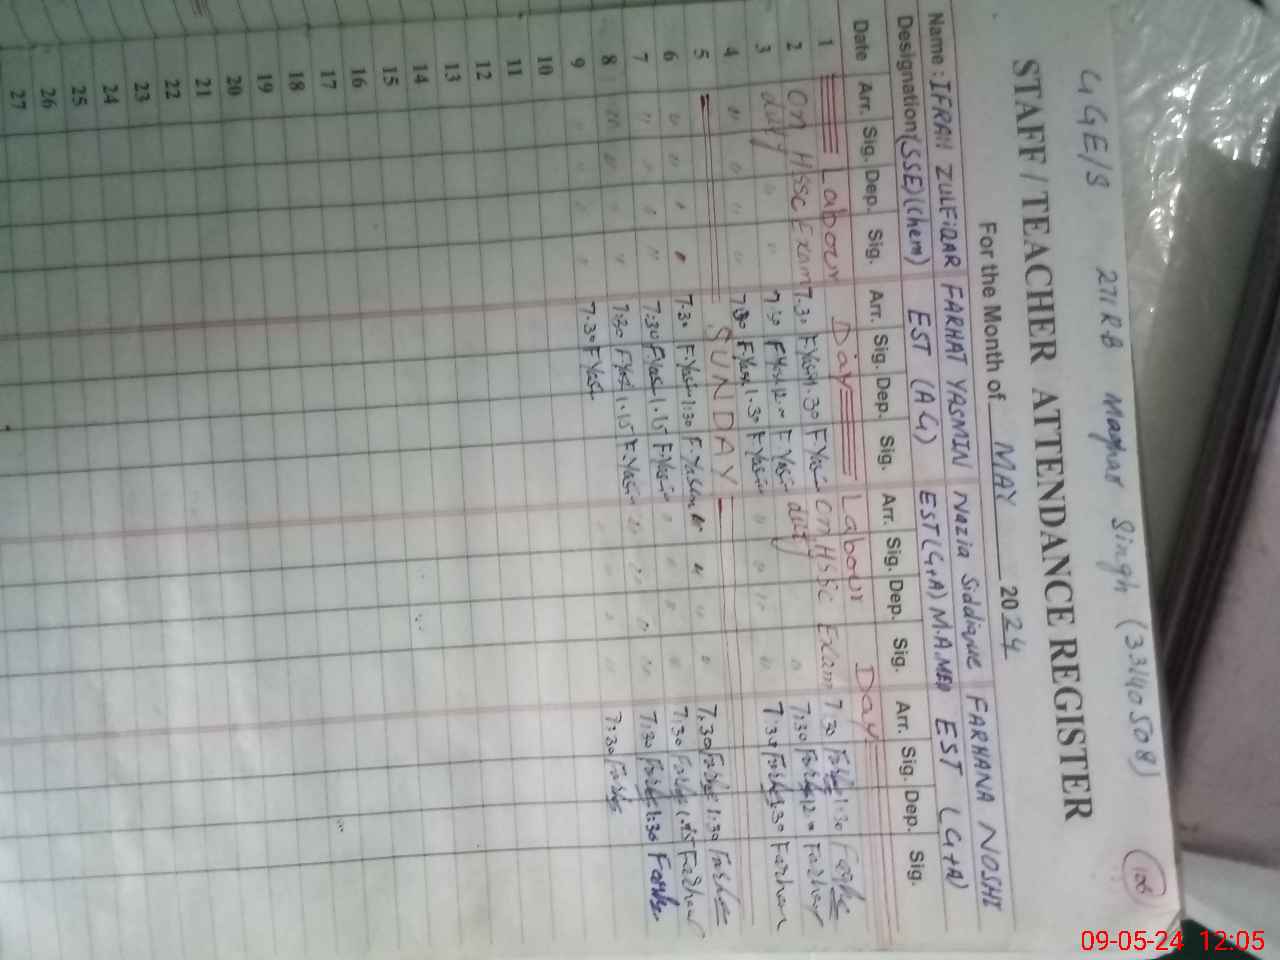 GGE/S 271 R-B Maghar Singh (33140508)
106
STAFF / TEACHER ATTENDANCE REGISTER
For the Month of MAY 2024
Name : IFRAH ZULFIQAR FARHAT YASMIN Nazia Siddique FARHANA NOSHI
Designation (SSE)(Chem) EST (AG) EST (G+A) M.A.MED EST (G+A)
Date Arr. Sig. Dep. Sig. Arr. Sig. Dep. Sig. Arr. Sig. Dep. Sig. Arr. Sig. Dep. Sig.
1 Labour Day Labour Day
2 On HSSC Exam 7.30 F.Yasm 1.30 F.Yasm On HSSC Exam 7.30 1.30
3 duty " " 7:30 F.Yasm 12.00 F.Yasm duty " 7:30 12.00 Farhan
4 " " " " 7:30 F.Yasm 1.30 F.Yasm " " " " 7:30 1:30 Farhan
5 SUNDAY
6 " " " " 7.30 F.Yasm 1:30 F.Yasm " " " " 7.30 1:30
7 " " " " 7:30 F.Yasm 1.15 F.Yasm " " " " 7:30 1.15 Farhan
8 " " " " 7:30 F.Yasm 1.15 F.Yasm " " " " 7:30 1:30
9 " " " " 7.30 F.Yasm " " " " 7:30
10
11
12
13
14
15
16
17
18
19
20
21
22
23
24
25
26
27
09-05-24 12:05